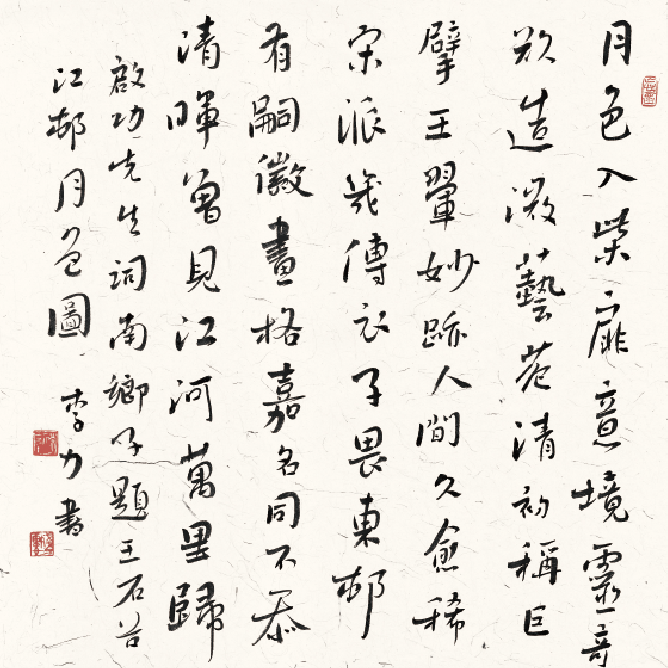 月色入柴扉意境靈奇
欲造微藝苑清初稱巨
擘王翬妙跡人間久愈稀
宋派幾傳衣子畏東邨
有嗣徽畫格嘉名同不忝
清暉曾見江河萬里歸
啟功先生詞南鄉子題王石谷
江邨月色圖 李力書